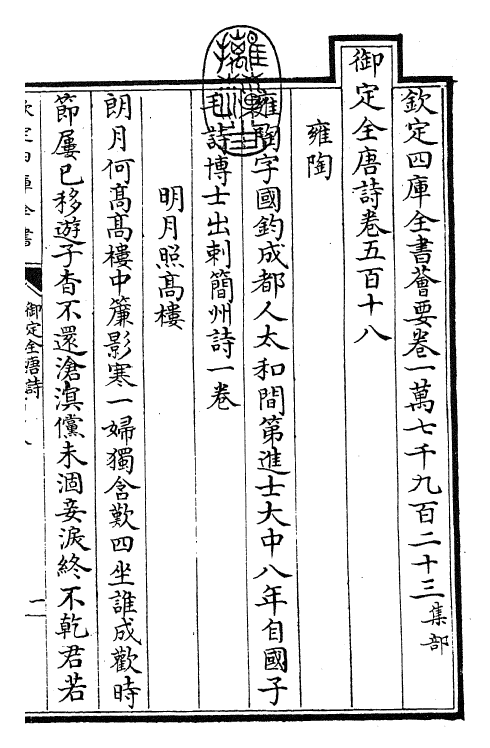 欽定四庫全書薈要卷一萬七千九百二十三集部
御定全唐詩卷五百十八
雍陶
雍陶字國鈞成都人太和間第進士大中八年自國子
毛詩博士出刺簡州詩一卷
明月照高樓
朗月何高高樓中簾影寒一婦獨含歎四坐誰成歡時
節屢已移遊子杳不還滄溟儻未涸妾淚終不乾君若
欽定四庫全書
御定全唐詩
一